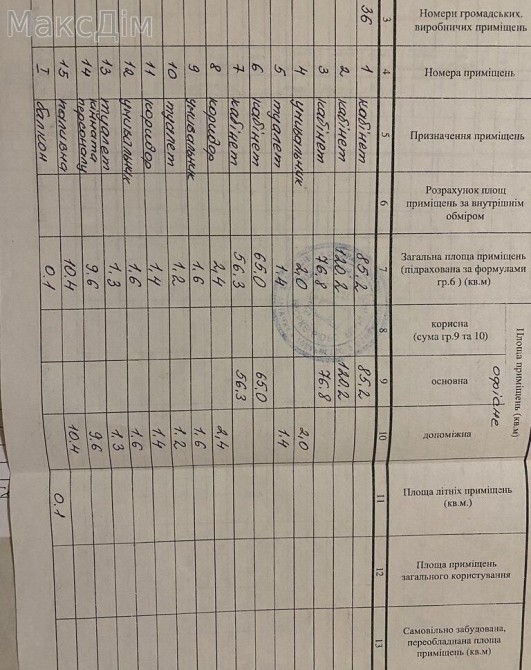 МаксДім
Номери громадських, виробничих приміщень
Номера приміщень
Призначення приміщень
Розрахунок площ приміщень за внутрішнім обміром
Загальна площа приміщень (підрахована за формулами гр.6 ) (кв.м)
Площа приміщень (кв.м)
офісне
корисна (сума гр.9 та 10)
основна
допоміжна
Площа літніх приміщень (кв.м.)
Площа приміщень загального користування
Самовільно забудована, переобладнана площа приміщень (кв.м)
3 4 5 6 7 8 9 10 11 12 13
36 1 кабінет 85.2 85.2
2 кабінет 120.2 120.2
3 кабінет 76.8 76.8
4 умивальник 2,0 2,0
5 туалет 1.4 1.4
6 кабінет 65.0 65.0
7 кабінет 56.3 56.3
8 коридор 2,4 2,4
9 умивальник 1.6 1.6
10 туалет 1.2 1.2
11 коридор 1,4 1.4
12 умивальник 1.6 1.6
13 туалет 1.3 1.3
14 кімната персоналу 9.6 9.6
15 паливна 10.4 10.4
I балкон 0.1 0.1